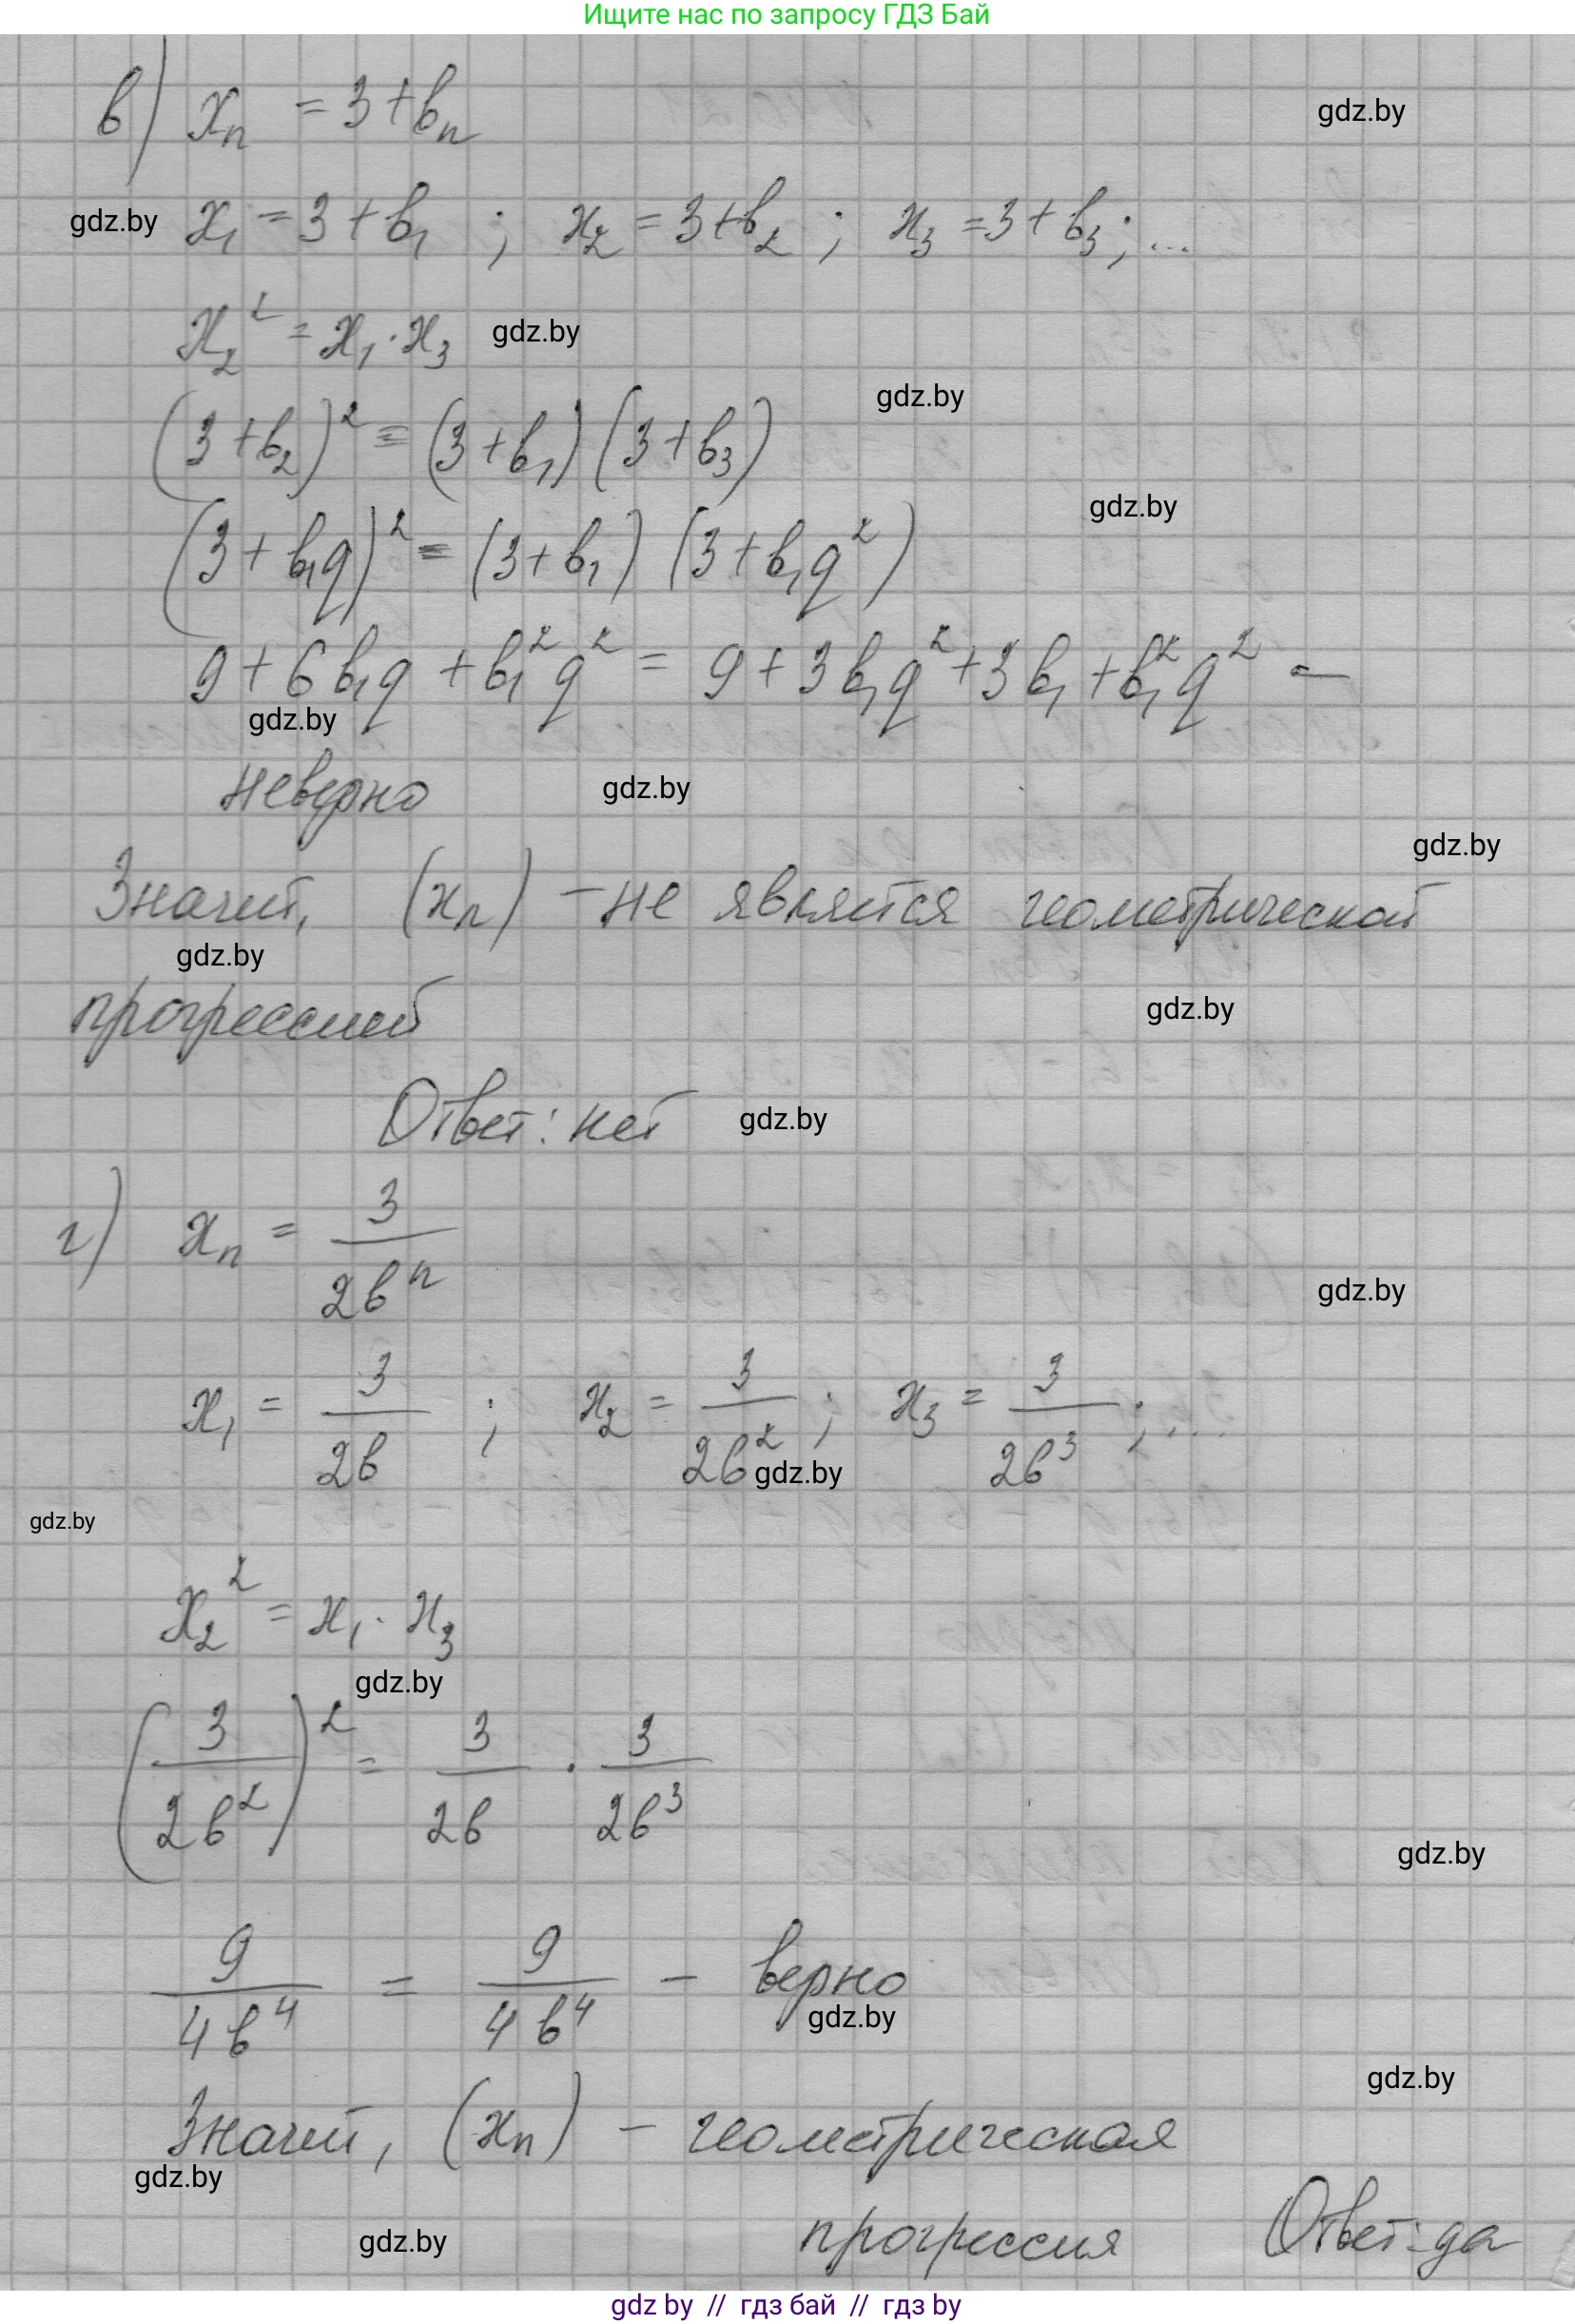 Ищите нас по запросу ГДЗ Бай
в) xₙ = 3 + bₙ
gdz.by
gdz.by
x₁ = 3 + b₁ ; x₂ = 3 + b₂ ; x₃ = 3 + b₃ ; ...
x₂² = x₁ · x₃
gdz.by
gdz.by
(3 + b₂)² = (3 + b₁)(3 + b₃)
gdz.by
(3 + b₁q)² = (3 + b₁)(3 + b₁q²)
9 + 6b₁q + b₁²q² = 9 + 3b₁q² + 3b₁ + b₁²q² –
gdz.by
неверно
gdz.by
gdz.by
Значит, (xₙ) – не является геометрической
gdz.by
прогрессией
gdz.by
Ответ: нет
gdz.by
г) xₙ = 3/(2bⁿ)
gdz.by
x₁ = 3/(2b) ; x₂ = 3/(2b²) ; x₃ = 3/(2b³) ; ...
gdz.by
gdz.by
x₂² = x₁ · x₃
gdz.by
(3/(2b²))² = 3/(2b) · 3/(2b³)
gdz.by
9/(4b⁴) = 9/(4b⁴) – верно
gdz.by
gdz.by
Значит, (xₙ) – геометрическая
gdz.by
прогрессия Ответ: да
gdz.by
gdz by // гдз бай // гдз by